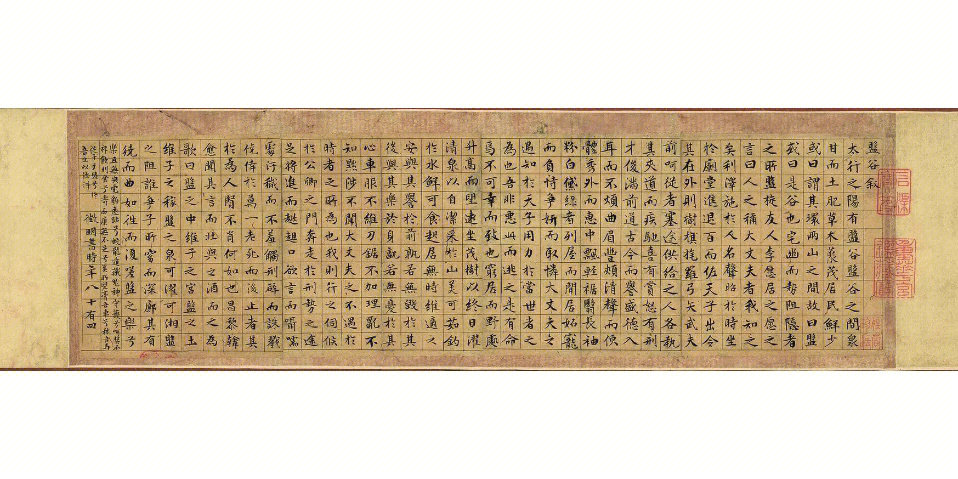 盤谷叙
太行之陽有盤谷盤谷之間泉
甘而土肥草木叢茂居民鮮少
或曰謂其環兩山之間故曰盤
或曰是谷也宅幽而勢阻隱者
之所盤旋友人李愿居之愿之
言曰人之稱大丈夫者我知之
矣利澤施於人名聲昭於時坐
於廟堂進退百而佐天子出令
其在外則樹旗旄羅弓矢武夫
前呵從者塞途供給之人各執
其夾道而疾馳喜有賞怒有刑
才俊滿前道古今而譽盛德入
耳而不煩曲眉豐頰清聲而便
體秀外而惠中飄輕裾翳長袖
粉白黛綠者列屋而閒居妬寵
而負恃爭妍而取憐大丈夫之
遇知於天子用力於當世者之
為也吾非惡此而逃之是有命
焉不可幸而致也窮居而野處
升高而望遠坐茂樹以終日濯
清泉以自潔采於山美可茹釣
於水鮮可食起居無時維適之
安與其譽於前孰若無毀於其
後與其樂於身孰若無憂於其
心車服不維刀鋸不加理亂不
知黜陟不聞大丈夫之不遇於
時者之所為也我則行之伺候
於公卿之門奔走於形勢之途
足將進而趑趄口欲言而囁嚅
處汙穢而不羞觸刑辟而誅戮
僥倖於萬一老死而後止者其
於為人賢不肖何如也昌黎韓
愈聞其言而壯與之酒而之為
歌曰盤之中維子之宮盤之土
維子之稼盤之泉可濯可湘盤
之阻誰爭子所窈而深廓其有
繞而曲如往而復嗟盤之樂兮
徵明書時年八十有四